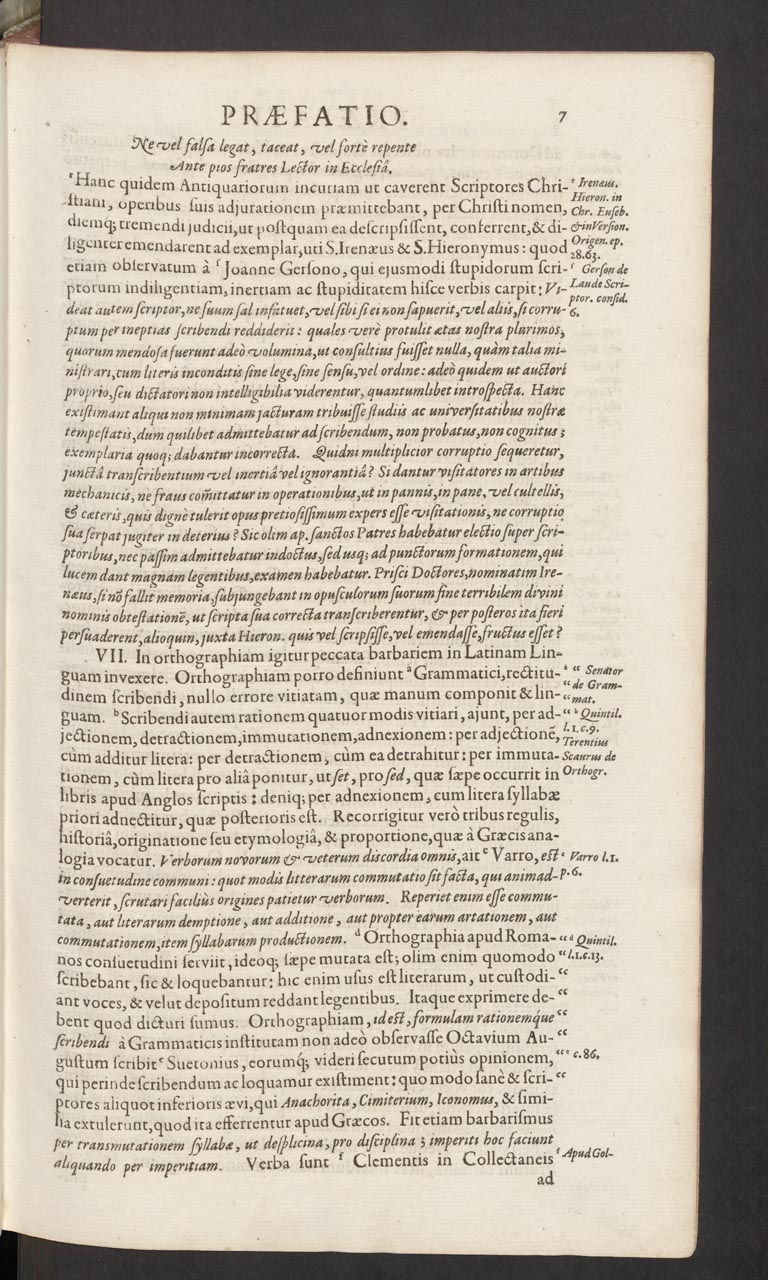 PRÆFATIO. 7
Ne vel falſa legat, taceat, vel fortè repente
Ante pios fratres Lector in Eccleſiâ.
ᵉHanc quidem Antiquariorum incuriam ut caverent Scriptores Chri-
ſtiani, operibus ſuis adjurationem præmittebant, per Chriſti nomen,
diemq; tremendi judicii, ut poſtquam ea deſcripſiſſent, conferrent, & di-
ligenter emendarent ad exemplar, uti S. Irenæus & S. Hieronymus: quod
etiam obſervatum à ᶠ Joanne Gerſono, qui ejuſmodi ſtupidorum ſcri-
ptorum indiligentiam, inertiam ac ſtupiditatem hiſce verbis carpit: Vi-
deat autem ſcriptor, ne ſuum ſal infatuet, vel ſibi ſi ei non ſapuerit, vel aliis, ſi corru-
ptum per ineptias ſcribendi reddiderit: quales verè protulit ætas noſtra plurimos,
quorum mendoſa fuerunt adeò volumina, ut conſultius fuiſſet nulla, quàm talia mi-
niſtrari, cum literis inconditis ſine lege, ſine ſenſu, vel ordine: adeò quidem ut auctori
proprio, ſeu dictatori non intelligibilia viderentur, quantumlibet introſpecta. Hanc
exiſtimant aliqui non minimam jacturam tribuiſſe ſtudiis ac univerſitatibus noſtræ
tempeſtatis, dum quilibet admittebatur ad ſcribendum, non probatus, non cognitus;
exemplaria quoq; dabantur incorrecta. Quidni multiplicior corruptio ſequeretur,
junctâ tranſcribentium vel inertiâ vel ignorantiâ? Si dantur viſitatores in artibus
mechanicis, ne fraus com̃ittatur in operationibus, ut in pannis, in pane, vel cultellis,
& cæteris, quis dignè tulerit opus pretioſiſſimum expers eſſe viſitationis, ne corruptio
ſua ſerpat jugiter in deterius? Sic olim ap. ſanctos Patres habebatur electio ſuper ſcri-
ptoribus, nec paſſim admittebatur indoctus, ſed usq; ad punctorum formationem, qui
lucem dant magnam legentibus, examen habebatur. Priſci Doctores, nominatim Ire-
næus, ſi nõ fallit memoria, ſubjungebant in opuſculorum ſuorum fine terribilem divini
nominis obteſtationẽ, ut ſcripta ſua correcta tranſcriberentur, & per poſteros ita fieri
perſuaderent, alioquin, juxta Hieron. quis vel ſcripſiſſe, vel emendaſſe, fructus eſſet?
VII. In orthographiam igitur peccata barbariem in Latinam Lin-
guam invexere. Orthographiam porro definiunt ᵃ Grammatici, rectitu-
dinem ſcribendi, nullo errore vitiatam, quæ manum componit & lin-
guam. ᵇ Scribendi autem rationem quatuor modis vitiari, ajunt, per ad-
jectionem, detractionem, immutationem, adnexionem: per adjectionẽ,
cùm additur litera: per detractionem, cùm ea detrahitur: per immuta-
tionem, cùm litera pro aliâ ponitur, ut ſet, pro ſed, quæ ſæpe occurrit in
libris apud Anglos ſcriptis: deniq; per adnexionem, cum litera ſyllabæ
priori adnectitur, quæ poſterioris eſt. Recorrigitur verò tribus regulis,
hiſtoriâ, originatione ſeu etymologiâ, & proportione, quæ à Græcis ana-
logia vocatur. Verborum novorum & veterum diſcordia omnis, ait ᶜ Varro, eſt
in conſuetudine communi: quot modis litterarum commutatio ſit facta, qui animad-
verterit, ſcrutari faciliùs origines patietur verborum. Reperiet enim eſſe commu-
tata, aut literarum demptione, aut additione, aut propter earum artationem, aut
commutationem, item ſyllabarum productionem. ᵈ Orthographia apud Roma-
nos conſuetudini ſerviit, ideoq; ſæpe mutata eſt; olim enim quomodo
ſcribebant, ſic & loquebantur: hic enim uſus eſt literarum, ut cuſtodi-
ant voces, & velut depoſitum reddant legentibus. Itaque exprimere de-
bent quod dicturi ſumus. Orthographiam, id eſt, formulam rationemque
ſcribendi à Grammaticis inſtitutam non adeò obſervaſſe Octavium Au-
guſtum ſcribit ᵉ Suetonius, eorumq́; videri ſecutum potiùs opinionem,
qui perinde ſcribendum ac loquamur exiſtiment: quo modo ſanè & ſcri-
ptores aliquot inferioris ævi, qui Anachorita, Cimiterium, Iconomus, & ſimi-
lia extulerunt, quod ita efferrentur apud Græcos. Fit etiam barbariſmus
per tranſmutationem ſyllabæ, ut deſplicina, pro diſciplina; imperiti hoc faciunt
aliquando per imperitiam. Verba ſunt ᶠ Clementis in Collectaneis
ad
ᵉ Irenæus.
Hieron. in
Chr. Euſeb.
& in Verſion.
Origen. ep.
28. 63.
ᶠ Gerſon de
Laude Scri-
ptor. conſid.
6.
ᵃ “ Senator
“ de Gram-
“ mat.
“ ᵇ Quintil.
l. 1. c. 9.
Terentius
Scaurus de
Orthogr.
ᶜ Varro l. 1.
p. 6.
“ ᵈ Quintil.
“ l. 1. c. 13.
“
“
“
“
“
“ ᵉ c. 86.
“
ᶠ Apud Gol-